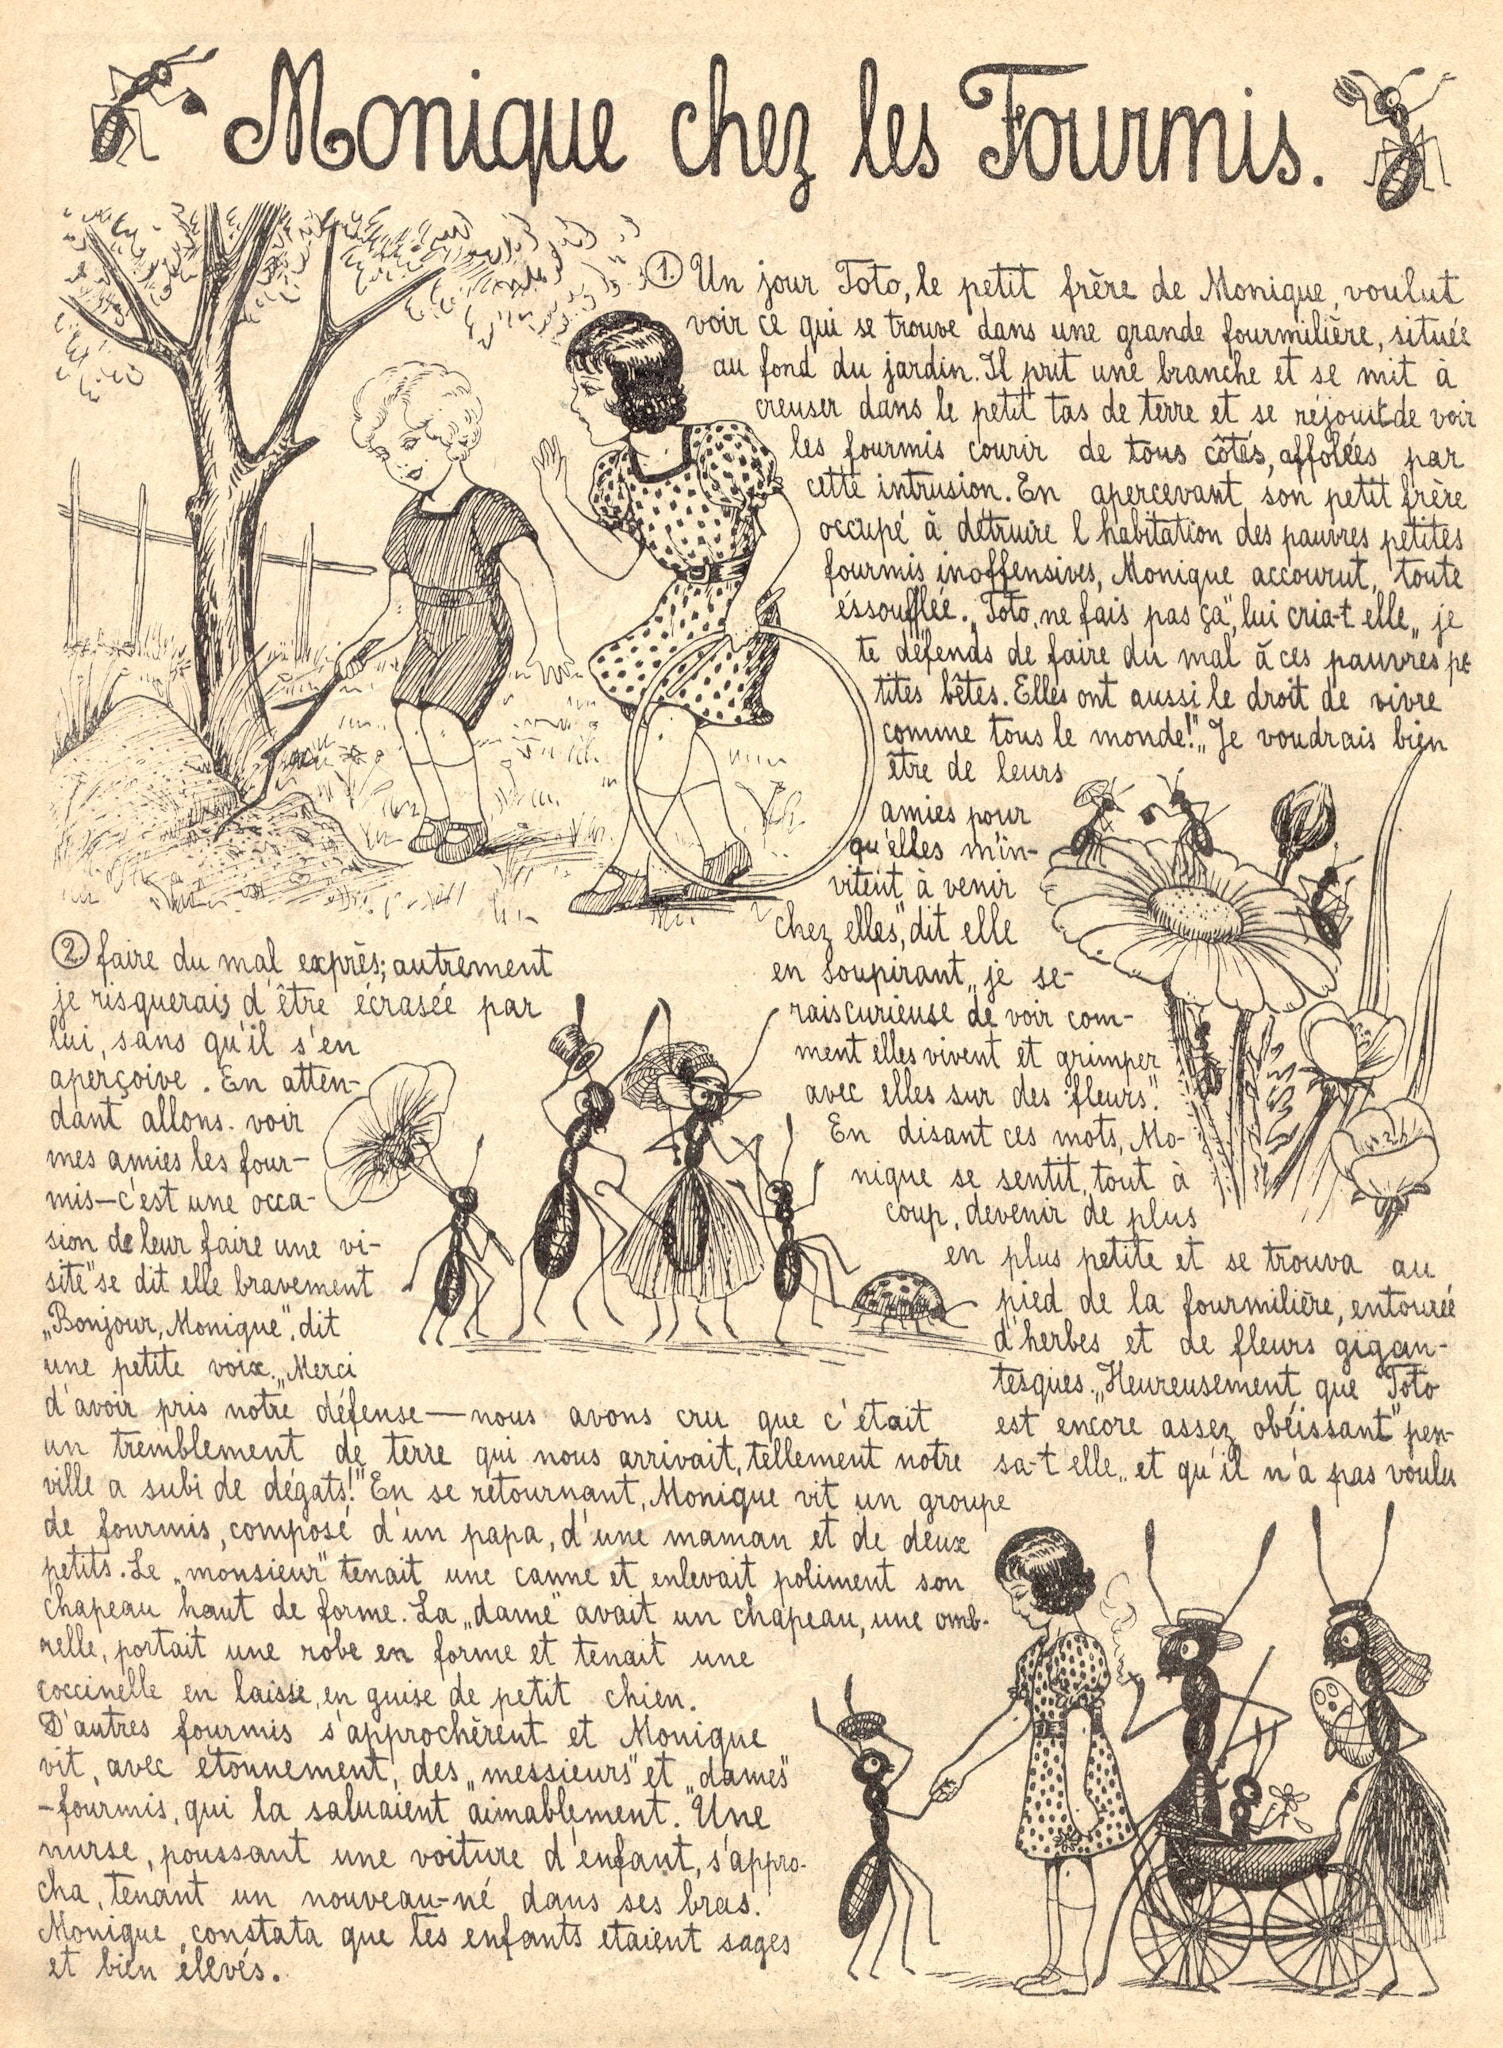 Monique chez les Fourmis.
1. Un jour Toto, le petit frère de Monique, voulut
voir ce qui se trouve dans une grande fourmilière, située
au fond du jardin. Il prit une branche et se mit à
creuser dans le petit tas de terre et se réjouit de voir
les fourmis courir de tous côtés, affolées par
cette intrusion. En apercevant son petit frère
occupé à détruire l'habitation des pauvres petites
fourmis inoffensives, Monique accourut, toute
éssoufflée. „Toto, ne fais pas ça", lui cria-t elle „je
te défends de faire du mal à ces pauvres pe
tites bêtes. Elles ont aussi le droit de vivre
comme tous le monde!" „Je voudrais bien
être de leurs
amies pour
qu'elles m'in-
vitent à venir
chez elles", dit elle
en soupirant „je se-
rais curieuse de voir com-
ment elles vivent et grimper
avec elles sur des fleurs".
En disant ces mots, Mo-
nique se sentit, tout à
coup, devenir de plus
en plus petite et se trouva au
pied de la fourmilière, entourée
d'herbes et de fleurs gigan-
tesques. „Heureusement que Toto
est encore assez obéissant" pen-
sa-t elle „et qu'il n'a pas voulu
2. faire du mal exprès; autrement
je risquerais d'être écrasée par
lui, sans qu'il s'en
aperçoive. En atten-
dant allons voir
mes amies les four-
mis—c'est une occa-
sion de leur faire une vi-
site" se dit elle bravement
„Bonjour, Monique", dit
une petite voix. „Merci
d'avoir pris notre défense—nous avons cru que c'était
un tremblement de terre qui nous arrivait, tellement notre
ville a subi de dégats!" En se retournant, Monique vit un groupe
de fourmis, composé d'un papa, d'une maman et de deux
petits. Le „monsieur" tenait une canne et enlevait poliment son
chapeau haut de forme. La „dame" avait un chapeau, une omb-
relle, portait une robe en forme et tenait une
coccinelle en laisse, en guise de petit chien.
D'autres fourmis s'approchèrent et Monique
vit, avec étonnement, des „messieurs" et „dames"
-fourmis, qui la saluaient aimablement. Une
nurse, poussant une voiture d'enfant, s'appro-
cha, tenant un nouveau-né dans ses bras.
Monique constata que les enfants etaient sages
et bien élevés.